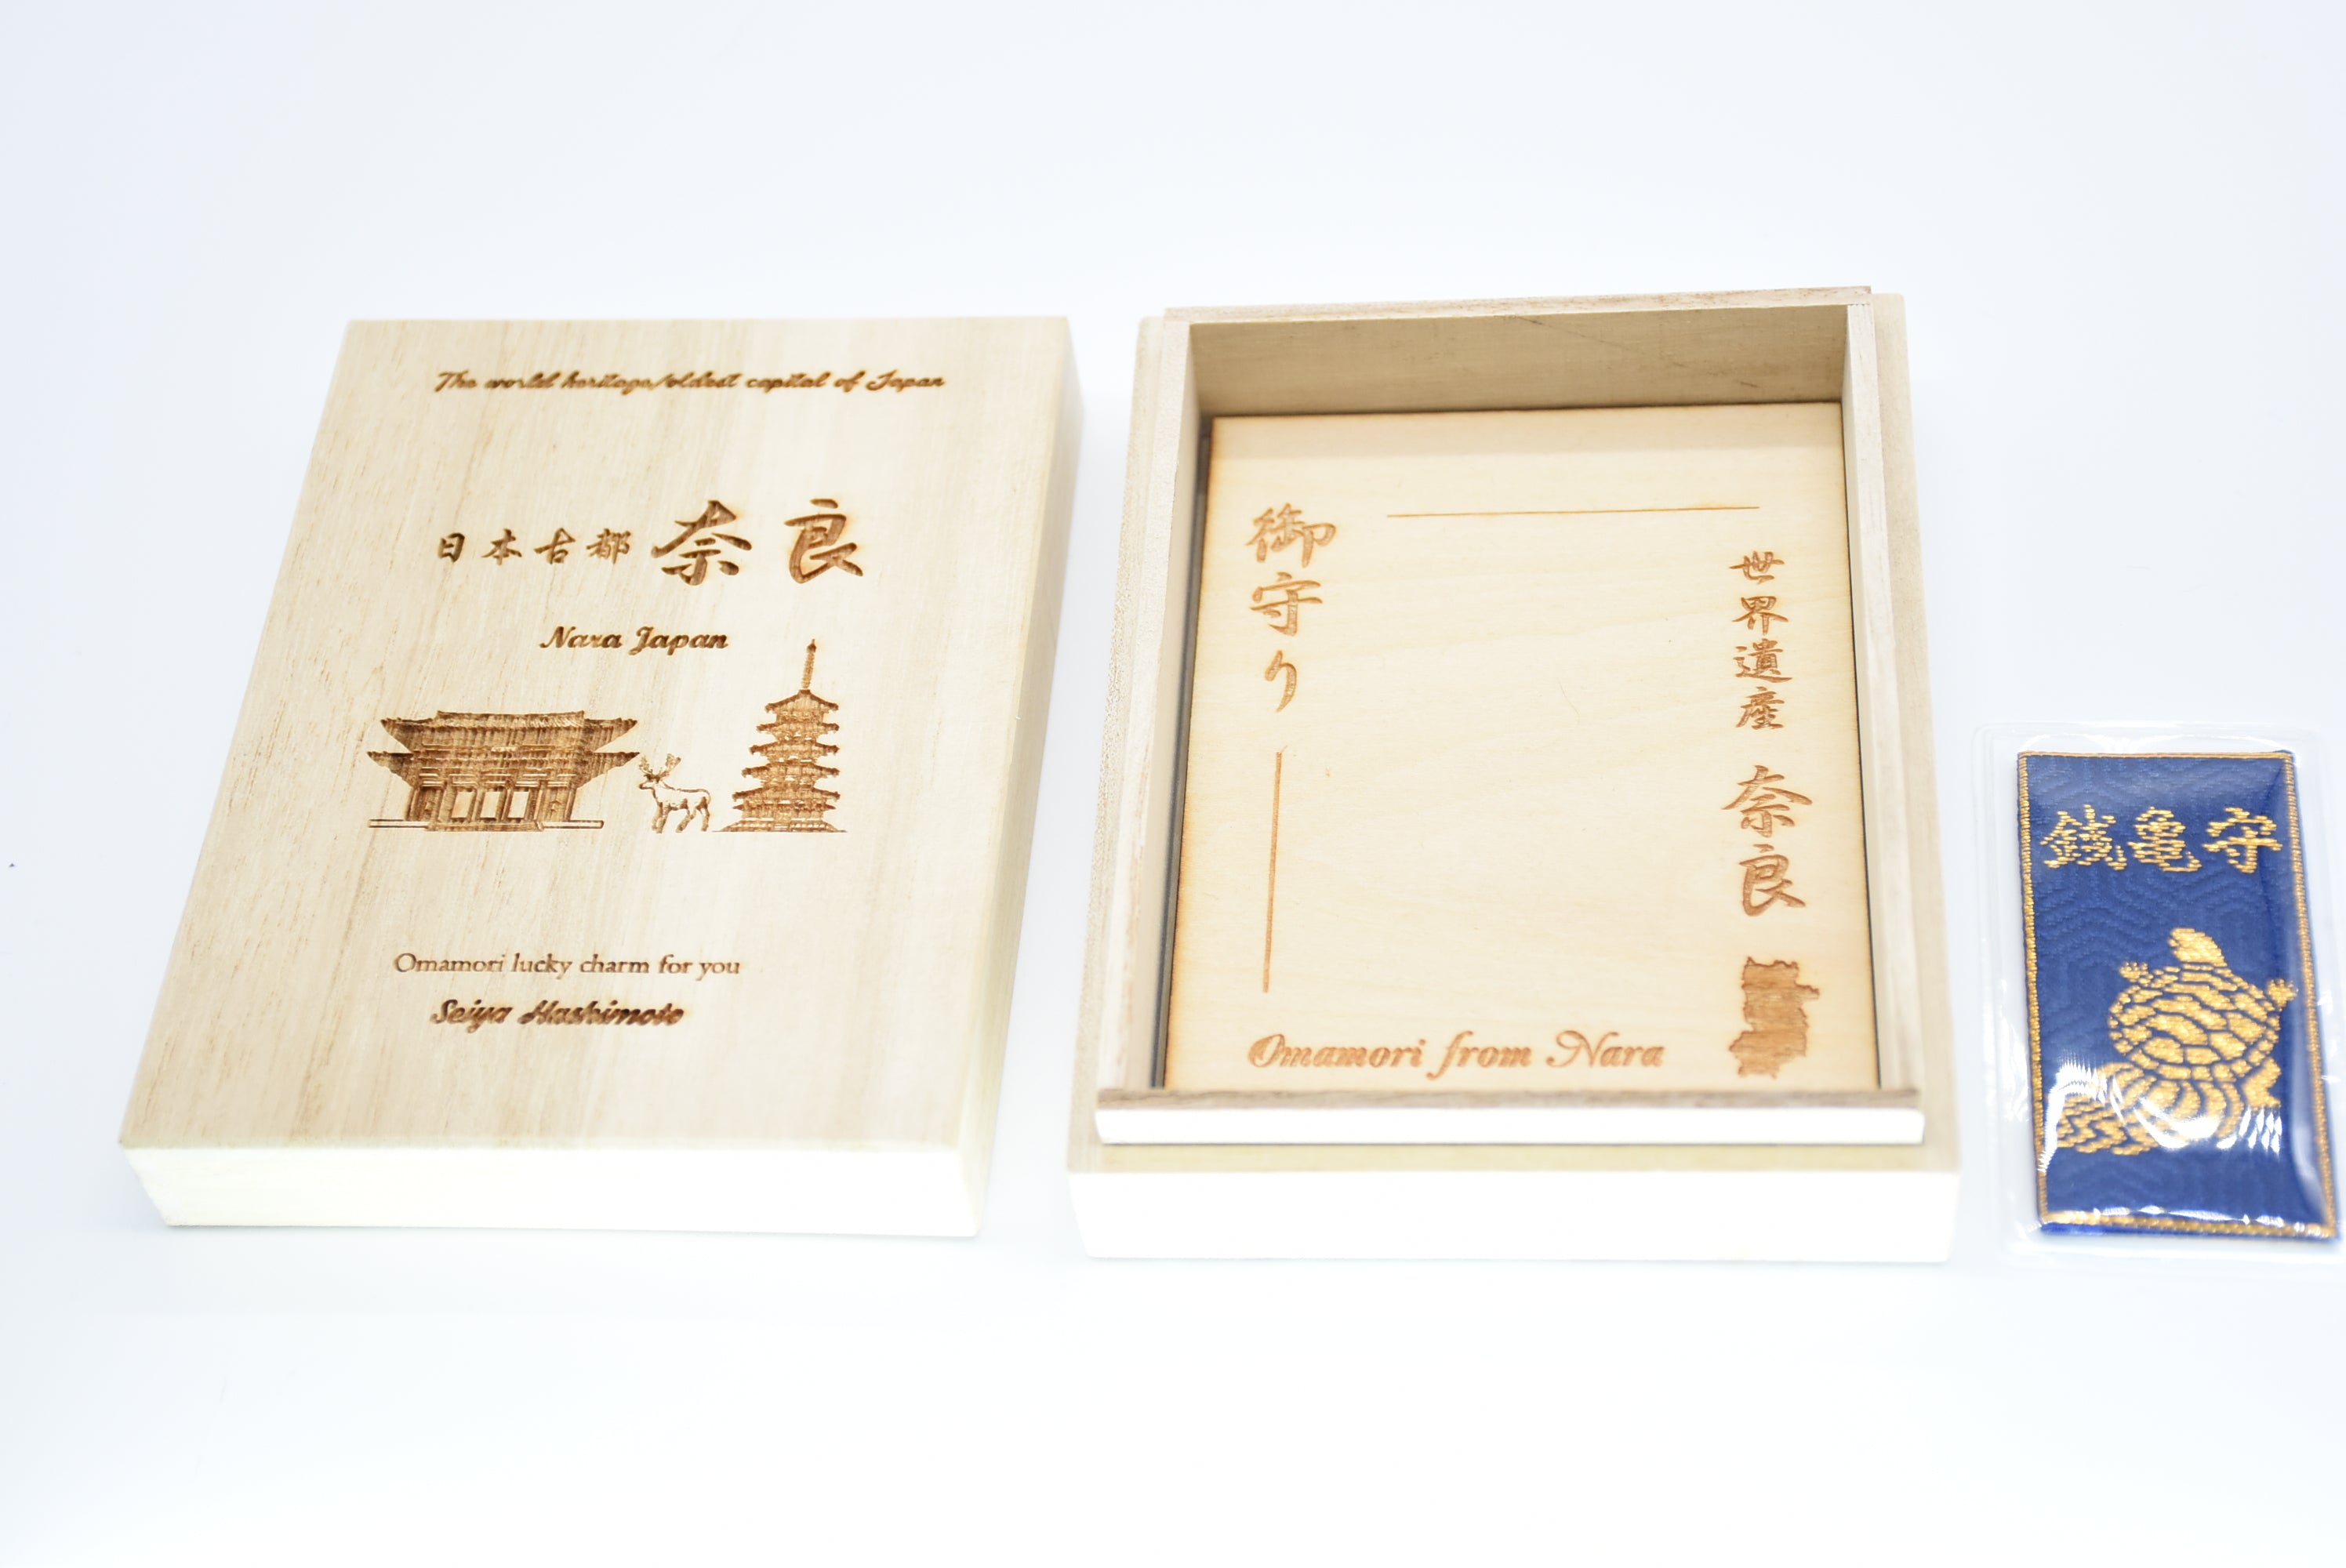 The world heritage/oldest capital of Japan
日本古都 奈良
Nara Japan
Omamori lucky charm for you
Seiya Hashimoto
御守り
世界遺産 奈良
Omamori from Nara
銭亀守